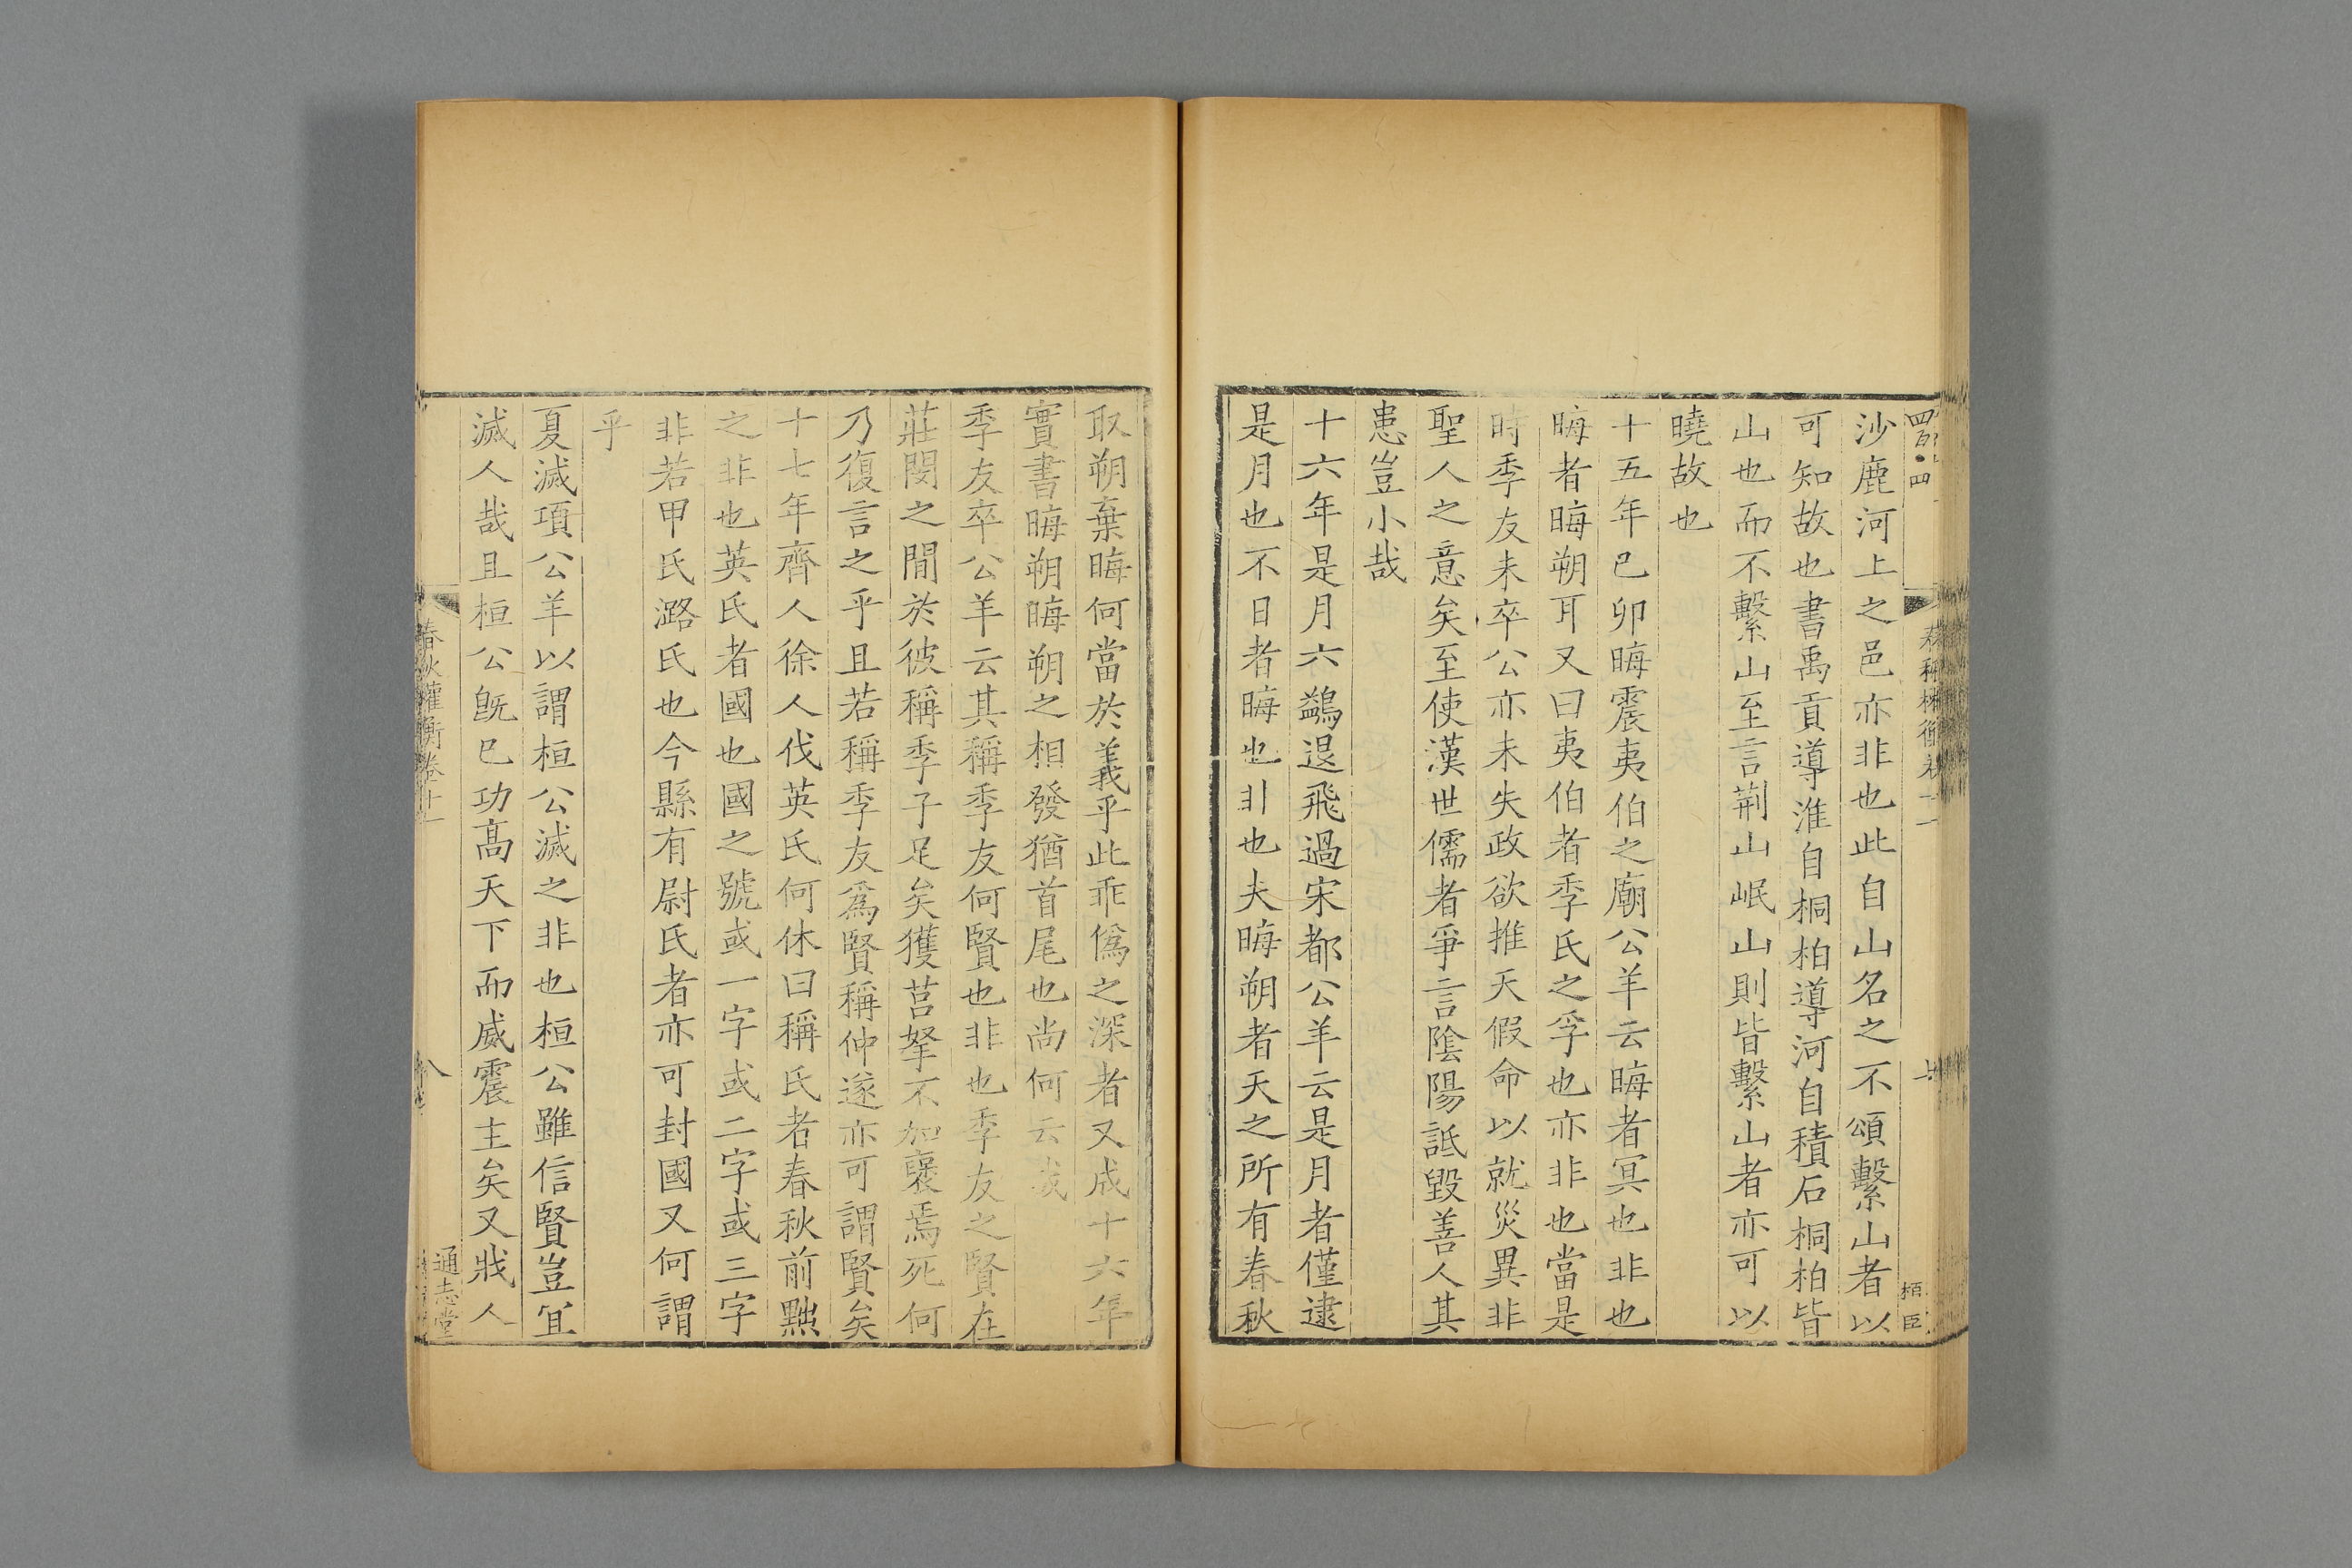 沙鹿河上之邑亦非也此自山名之不頌繫山者以
可知故也書禹貢導淮自桐柏導河自積石桐柏皆
山也而不繫山至言荆山岷山則皆繫山者亦可以
曉故也
十五年已卯晦震夷伯之廟公羊云晦者冥也非也
晦者晦朔耳又曰夷伯者季氏之孚也亦非也當是
時季友未卒公亦未失政欲推天假命以就災異非
聖人之意矣至使漢世儒者爭言陰陽詆毀善人其
患豈小哉
十六年是月六鷁退飛過宋都公羊云是月者僅逮
是月也不日者晦也非也夫晦朔者天之所有春秋
取朔棄晦何當於義乎此乖僞之深者又成十六年
實書晦朔晦朔之相發猶首尾也尚何云哉
季友卒公羊云其稱季友何賢也非也季友之賢在
莊閔之間於彼稱季子足矣獲莒挐不加襃焉死何
乃復言之乎且若稱季友爲賢稱仲遂亦可謂賢矣
十七年齊人徐人伐英氏何休曰稱氏者春秋前黜
之非也英氏者國也國之號或一字或二字或三字
非若甲氏潞氏也今縣有尉氏者亦可封國又何謂
乎
夏滅項公羊以謂桓公滅之非也桓公雖信賢豈宜
滅人哉且桓公旣已功高天下而威震主矣又戕人
春秋權衡卷十一
八
通志堂